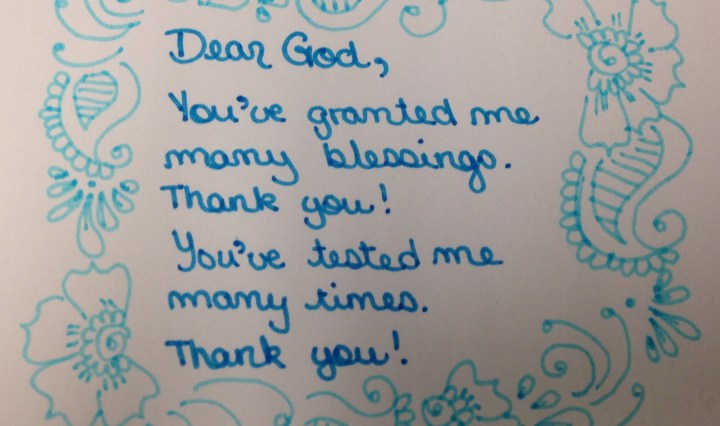 Dear God,
You've granted me
many blessings.
Thank you!
You've tested me
many times.
Thank you!